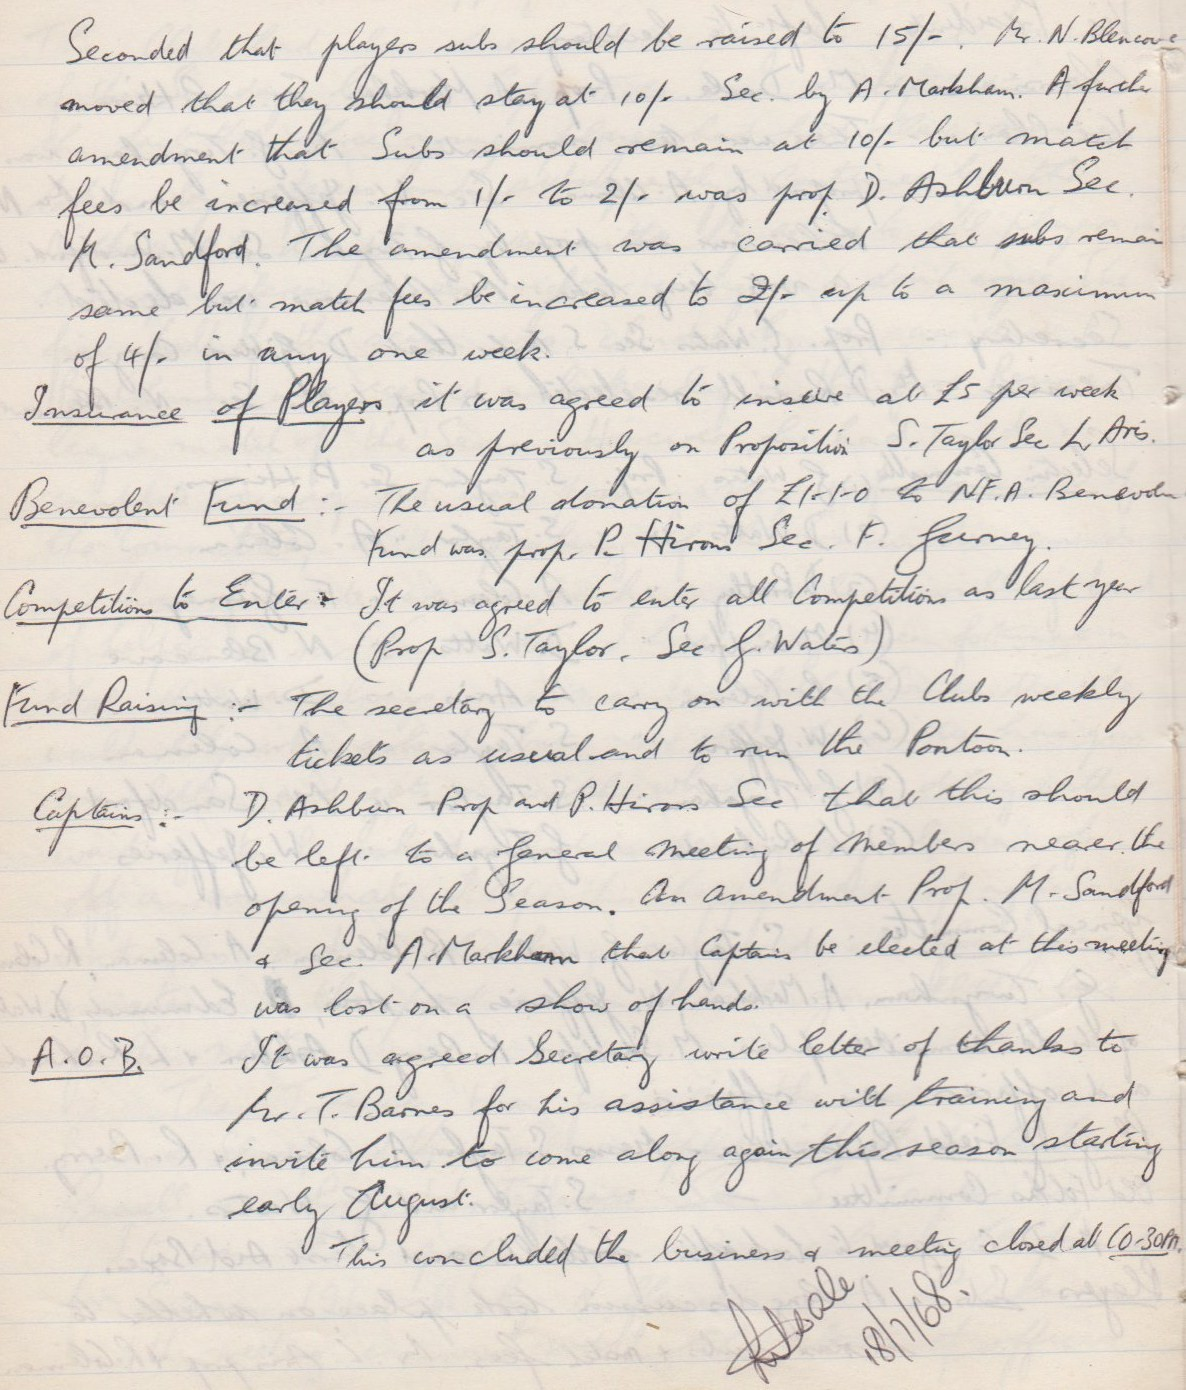 Seconded that players subs should be raised to 15/-. Mr. N. Blencowe
moved that they should stay at 10/- Sec. by A. Markham. A further
amendment that Subs should remain at 10/- but match
fees be increased from 1/- to 2/- was prop. D. Ashburn Sec.
M. Sandford. The amendment was carried that subs remain
same but match fees be increased to 2/- up to a maximum
of 4/- in any one week.
Insurance of Players it was agreed to insure at £5 per week
as previously on Proposition S. Taylor Sec L. Aris.
Benevolent Fund :- The usual donation of £1-1-0 to N.F.A. Benevolen
Fund was prop. P. Hirons Sec. F. Gurney.
Competitions to Enter :- It was agreed to enter all Competitions as last year
(Prop S. Taylor. Sec G. Waters)
Fund Raising :- The secretary to carry on with the Clubs weekly
tickets as usual and to run the Pontoon.
Captains :- D. Ashburn Prop and P. Hirons Sec that this should
be left to a General Meeting of Members nearer the
opening of the Season. An amendment Prop. M. Sandford
& Sec. A. Markham that Captains be elected at this meeting
was lost on a show of hands.
A.O.B. It was agreed Secretary write letter of thanks to
Mr. T. Barnes for his assistance with training and
invite him to come along again this season starting
early August.
This concluded the business & meeting closed at 10-30pm.
18/7/68.